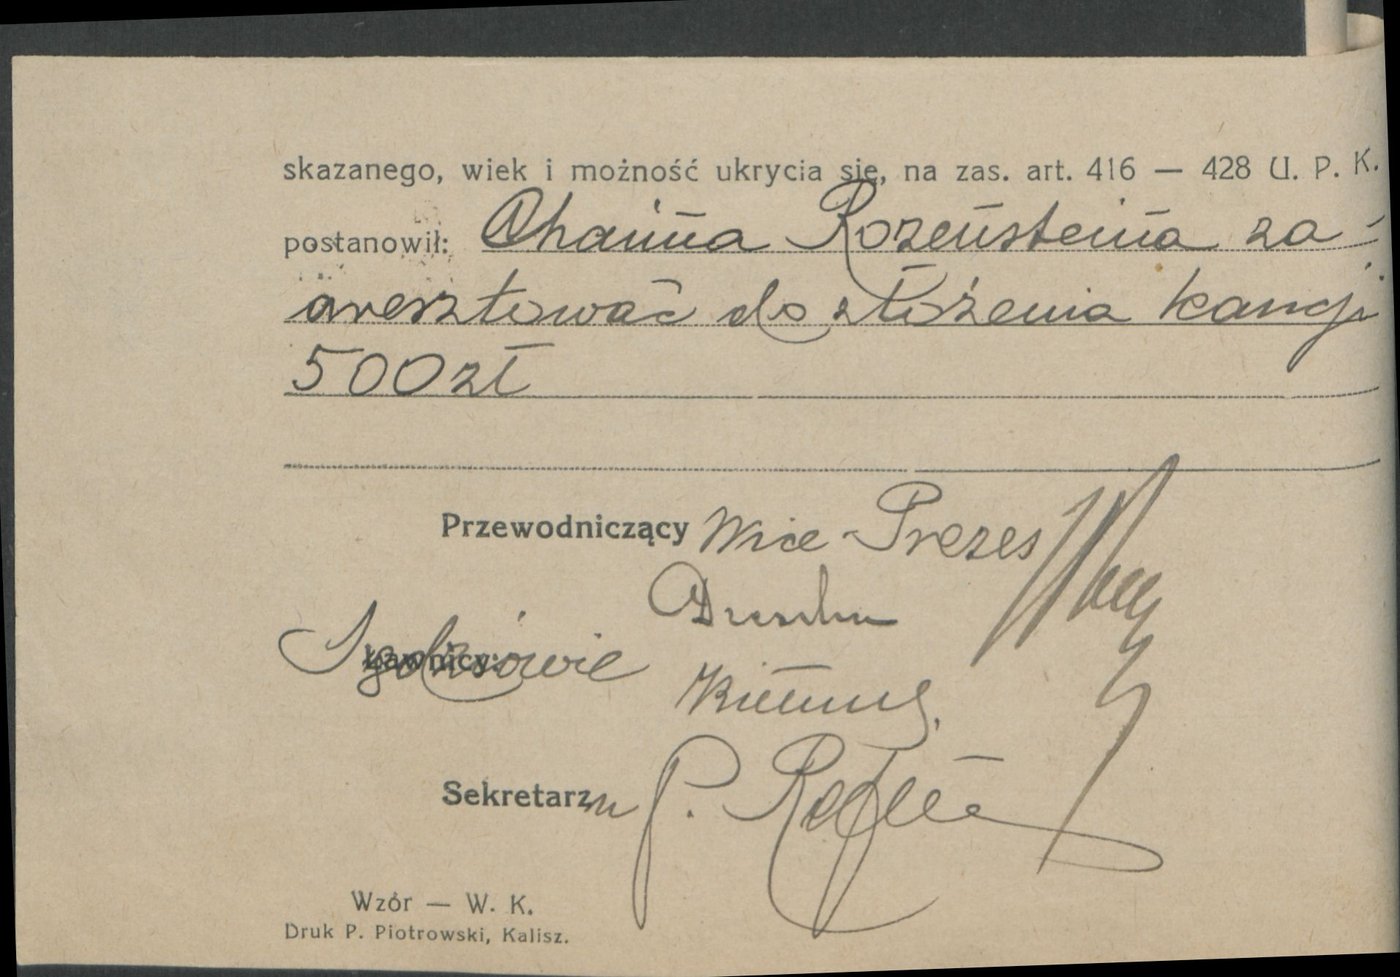 skazanego, wiek i możność ukrycia się, na zas. art. 416 — 428 U. P. K.
postanowił: Chaima Rozensteina za-
aresztować do złożenia kaucji
500 zł
Przewodniczący Wice-Prezes
Ławnicy: Sędziowie
Sekretarz P.
Wzór — W. K.
Druk P. Piotrowski, Kalisz.